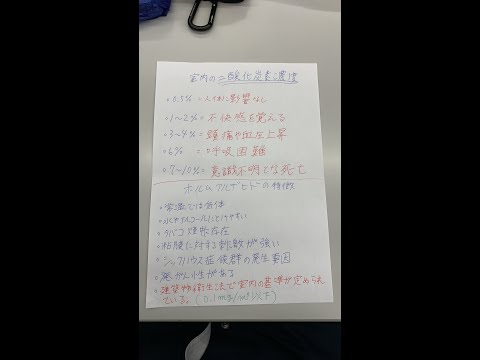 室内の二酸化炭素濃度
・0.5% = 人体に影響なし
・1~2% = 不快感を覚える
・3~4% = 頭痛や血圧上昇
・6% = 呼吸困難
・7~10% = 意識不明となり死亡
ホルムアルデヒドの特徴
・常温では気体
・水やアルコールにとけやすい
・タバコ煙中存在
・粘膜に対する刺激が強い
・シックハウス症候群の発生要因
・発がん性がある
・建築物衛生法で室内の基準が定められ
ている。(0.1mg/m³以下)